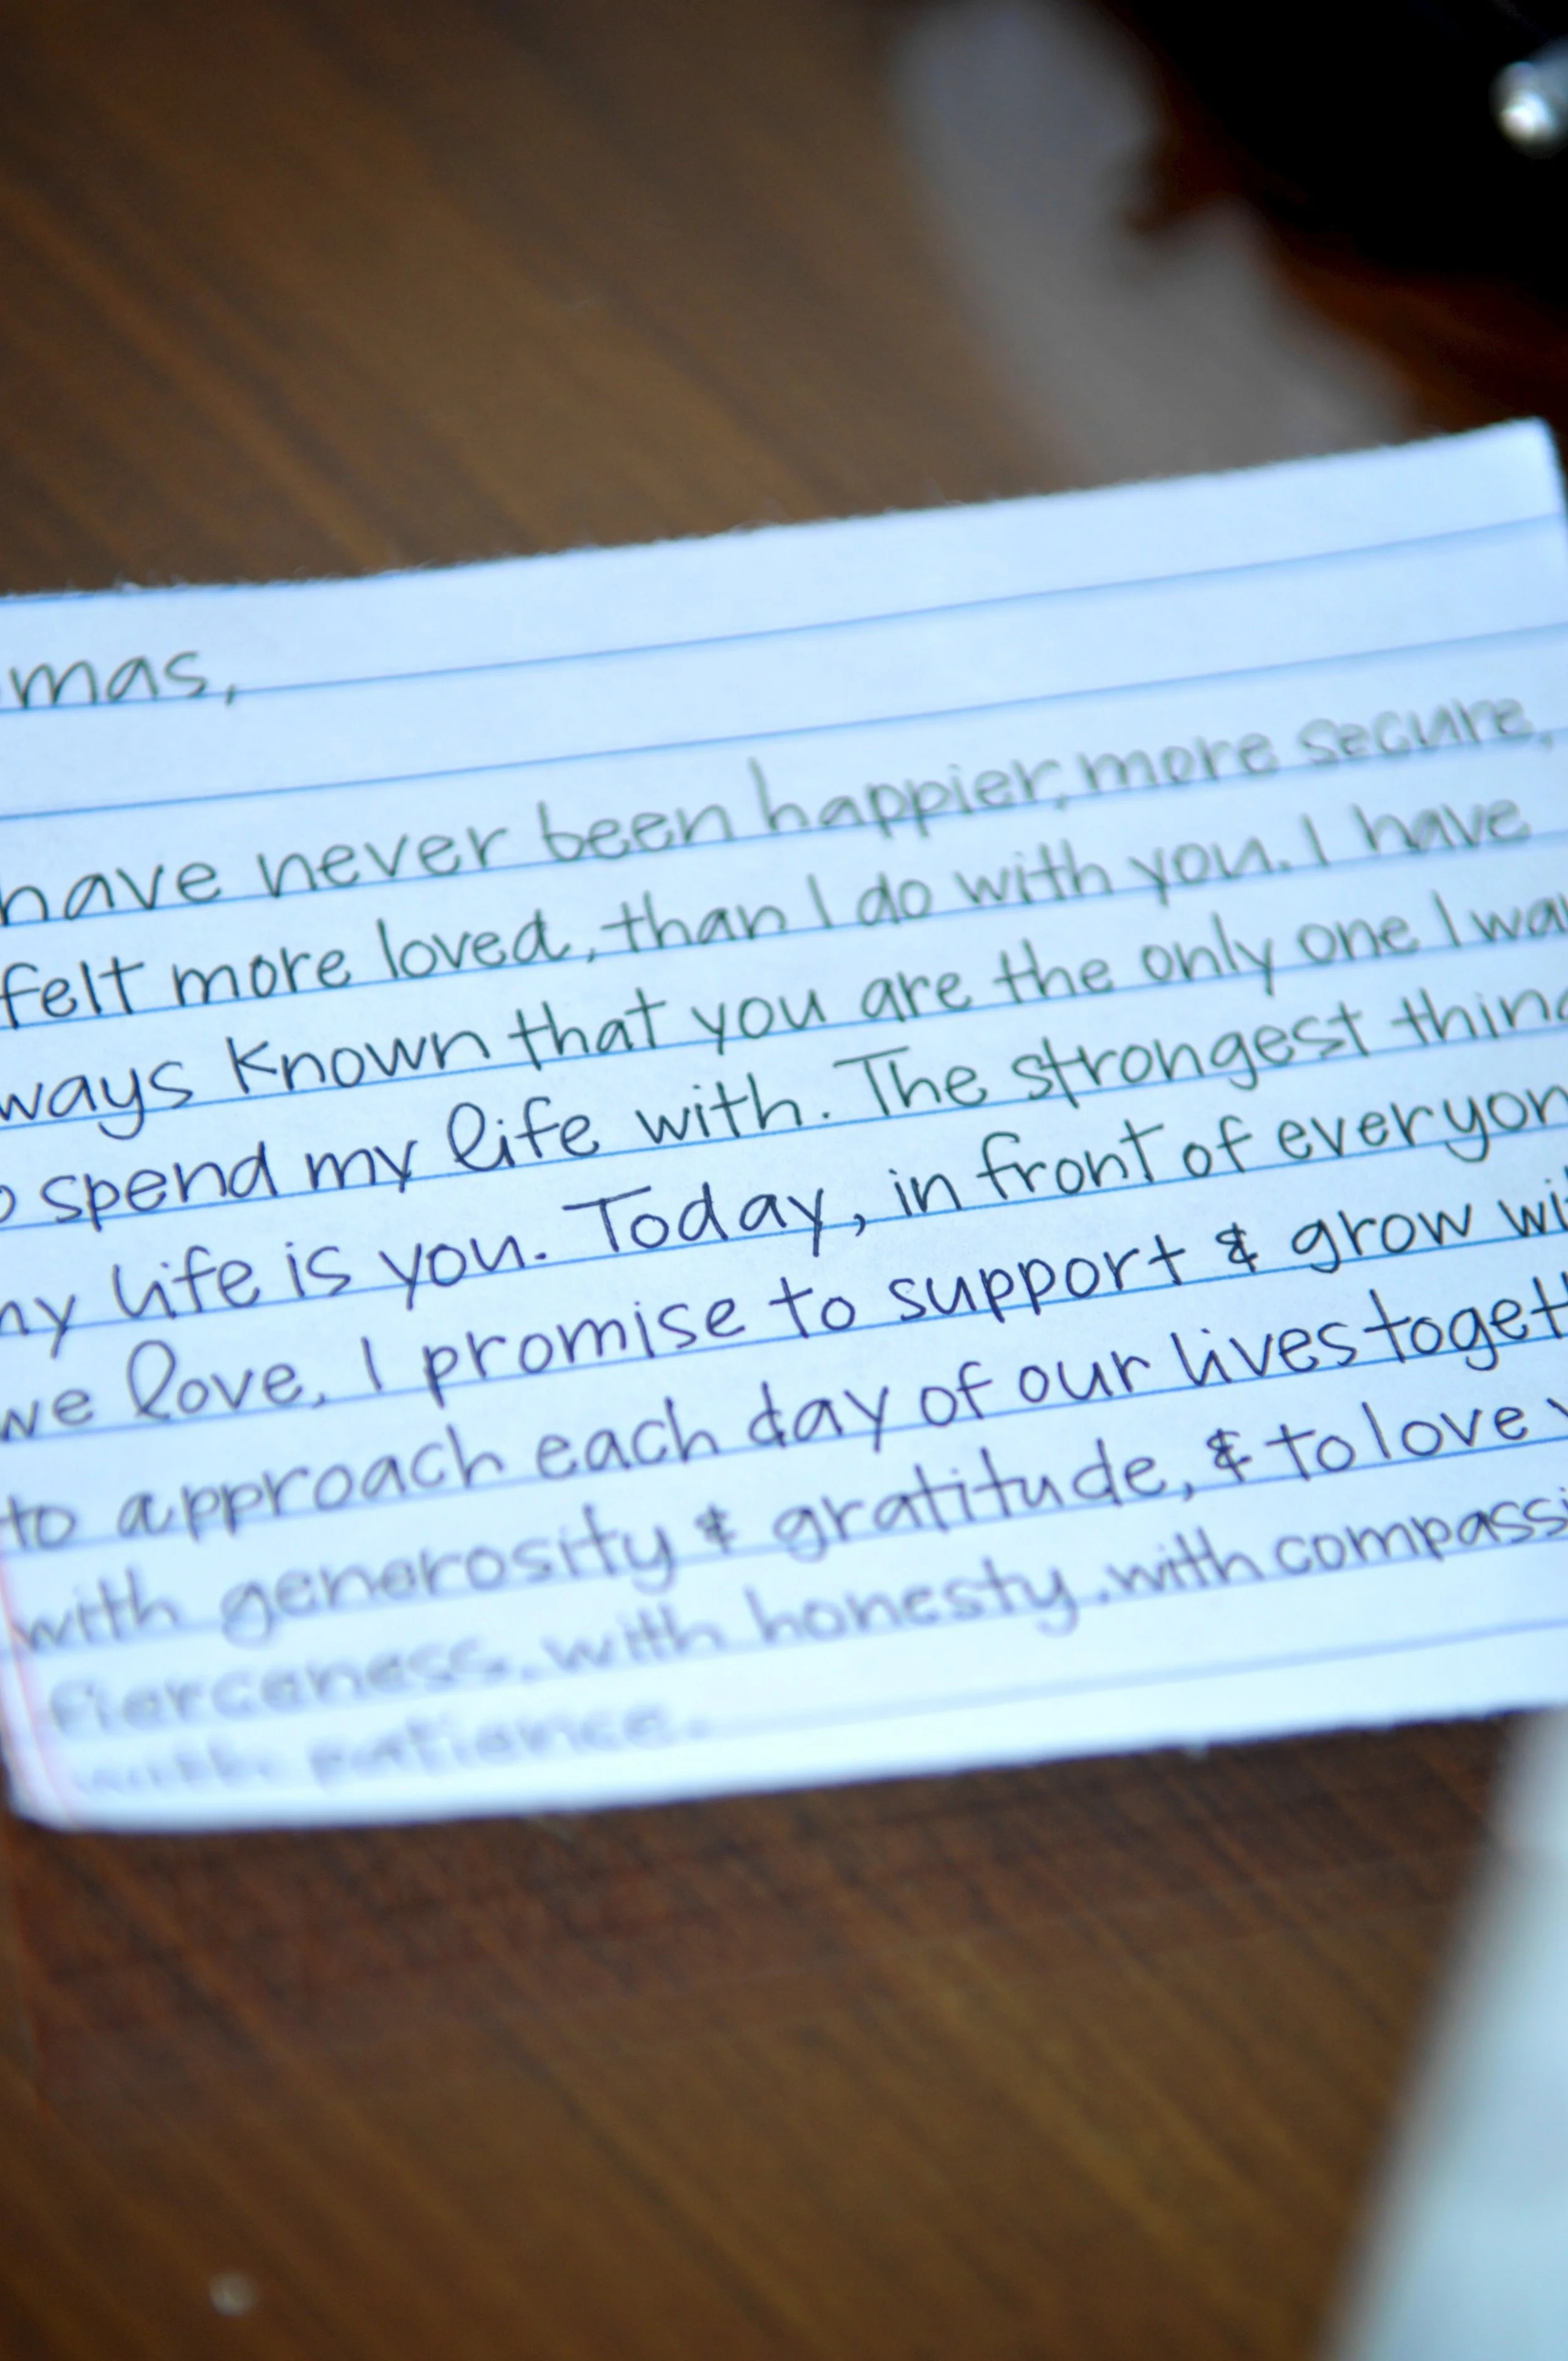 mas,
have never been happier, more secure,
felt more loved, than I do with you. I have
ways known that you are the only one I wa
o spend my life with. The strongest thing
ny life is you. Today, in front of everyon
we love, I promise to support & grow wit
to approach each day of our lives togeth
with generosity & gratitude, & to love y
fierceness, with honesty, with compassi
with patience.